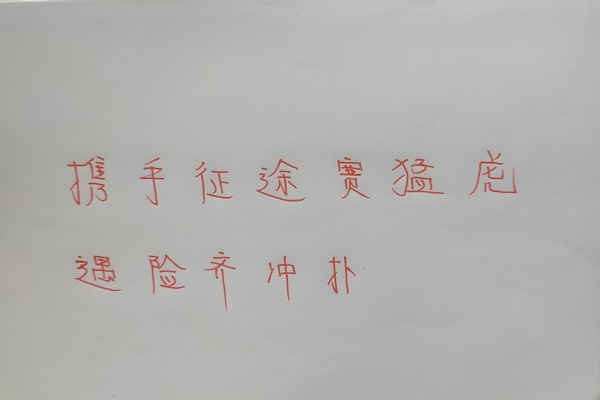 携手征途赛猛虎
遇险齐冲扑